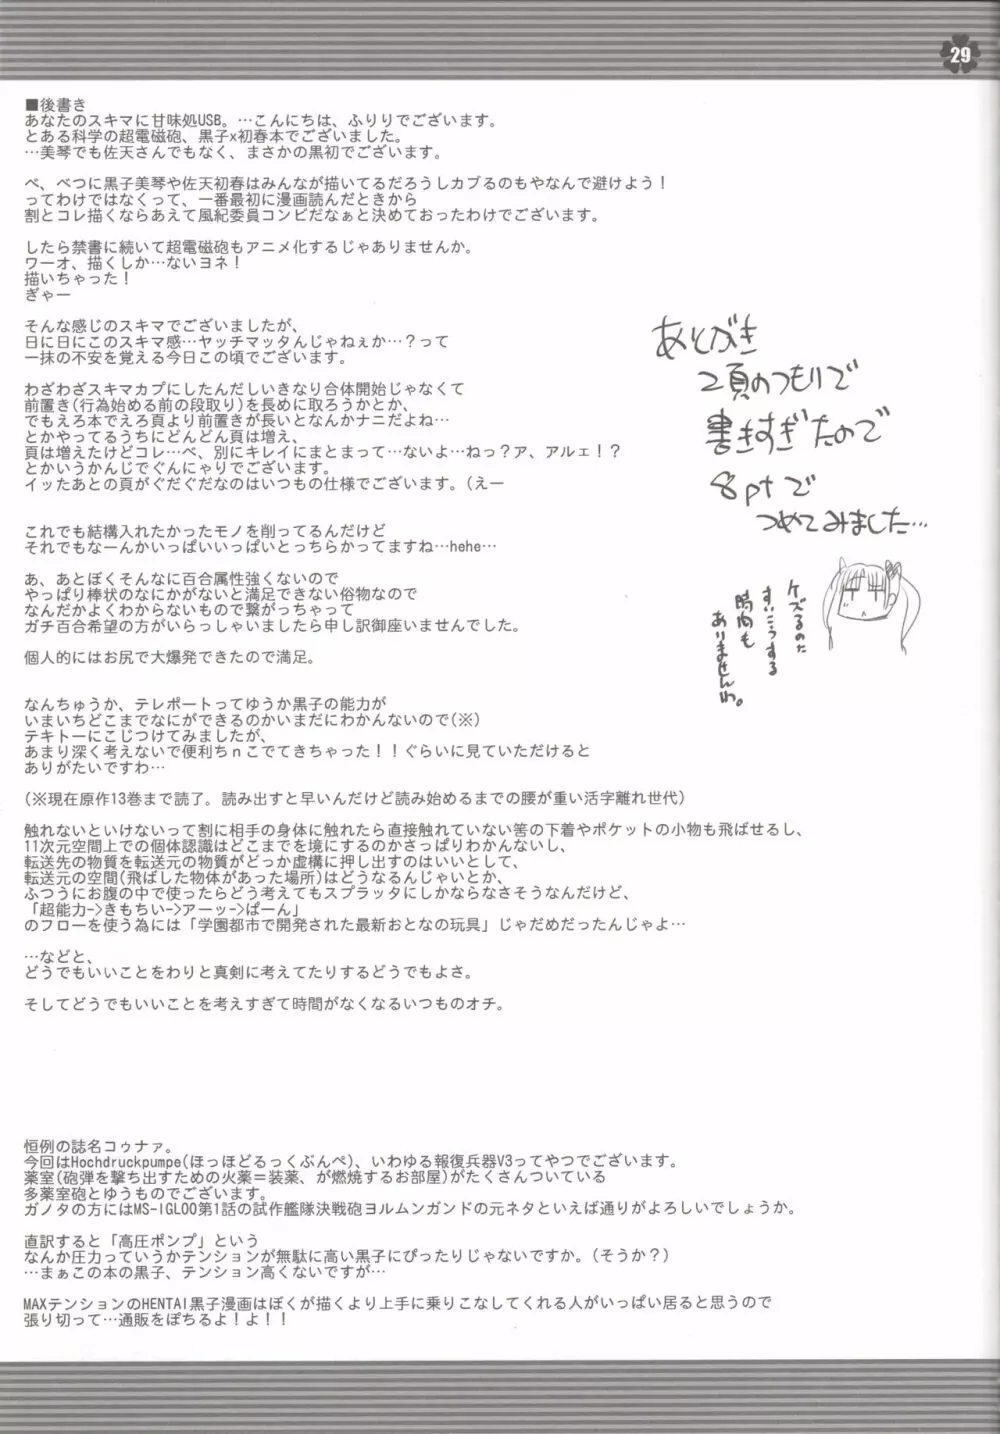 29
■後書き
あなたのスキマに甘味処USB。…こんにちは、ふりりでございます。
とある科学の超電磁砲、黒子x初春本でございました。
…美琴でも佐天さんでもなく、まさかの黒初でございます。
べ、べつに黒子美琴や佐天初春はみんなが描いてるだろうしカブるのもやなんで避けよう！
ってわけではなくって、一番最初に漫画読んだときから
割とコレ描くならあえて風紀委員コンビだなぁと決めておったわけでございます。
したら禁書に続いて超電磁砲もアニメ化するじゃありませんか。
ワーオ、描くしか…ないヨネ！
描いちゃった！
ぎゃー
そんな感じのスキマでございましたが、
日に日にこのスキマ感…ヤッチマッタんじゃねぇか…？って
一抹の不安を覚える今日この頃でございます。
わざわざスキマカプにしたんだしいきなり合体開始じゃなくて
前置き(行為始める前の段取り)を長めに取ろうかとか、
でもえろ本でえろ頁より前置きが長いとなんかナニだよね…
とかやってるうちにどんどん頁は増え、
頁は増えたけどコレ…べ、別にキレイにまとまって…ないよ…ねっ？ア、アルェ！？
とかいうかんじでぐんにゃりでございます。
イッたあとの頁がぐだぐだなのはいつもの仕様でございます。(えー
これでも結構入れたかったモノを削ってるんだけど
それでもなーんかいっぱいいっぱいとっちらかってますね…hehe…
あ、あとぼくそんなに百合属性強くないので
やっぱり棒状のなにかがないと満足できない俗物なので
なんだかよくわからないもので繋がっちゃって
ガチ百合希望の方がいらっしゃいましたら申し訳御座いませんでした。
個人的にはお尻で大爆発できたので満足。
なんちゅうか、テレポートってゆうか黒子の能力が
いまいちどこまでなにができるのかいまだにわかんないので(※)
テキトーにこじつけてみましたが、
あまり深く考えないで便利ちｎこでてきちゃった！！ぐらいに見ていただけると
ありがたいですわ…
(※現在原作13巻まで読了。読み出すと早いんだけど読み始めるまでの腰が重い活字離れ世代)
触れないといけないって割に相手の身体に触れたら直接触れていない筈の下着やポケットの小物も飛ばせるし、
11次元空間上での個体認識はどこまでを境にするのかさっぱりわかんないし、
転送先の物質を転送元の物質がどっか虚構に押し出すのはいいとして、
転送元の空間(飛ばした物体があった場所)はどうなるんじゃいとか、
ふつうにお腹の中で使ったらどう考えてもスプラッタにしかならなさそうなんだけど、
「超能力->きもちい->アーッ->ぱーん」
のフローを使う為には「学園都市で開発された最新おとなの玩具」じゃだめだったんじゃよ…
…などと、
どうでもいいことをわりと真剣に考えてたりするどうでもよさ。
そしてどうでもいいことを考えすぎて時間がなくなるいつものオチ。
あとがき
2頁のつもりで
書きすぎたので
8ptで
つめてみました…
ケズるのた
すいこうする
時間も
ありませんわ。
恒例の誌名コゥナァ。
今回はHochdruckpumpe(ほっほどるっくぶんぺ)、いわゆる報復兵器V3ってやつでございます。
薬室(砲弾を撃ち出すための火薬＝装薬、が燃焼するお部屋)がたくさんついている
多薬室砲とゆうものでございます。
ガノタの方にはMS-IGLOO第1話の試作艦隊決戦砲ヨルムンガンドの元ネタといえば通りがよろしいでしょうか。
直訳すると「高圧ポンプ」という
なんか圧力っていうかテンションが無駄に高い黒子にぴったりじゃないですか。(そうか？)
…まぁこの本の黒子、テンション高くないですが…
MAXテンションのHENTAI黒子漫画はぼくが描くより上手に乗りこなしてくれる人がいっぱい居ると思うので
張り切って…通販をぽちるよ！よ！！